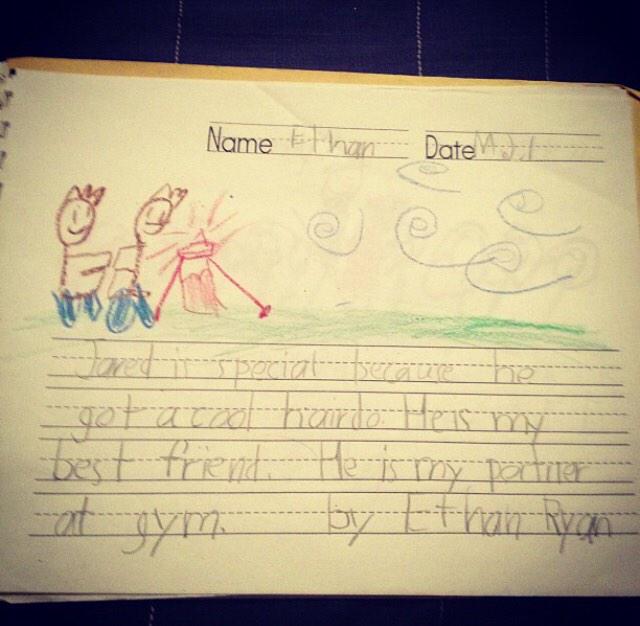 Name Ethan Date
Jared is special because he
got a cool hairdo. He is my
best friend. He is my partner
at gym. by Ethan Ryan